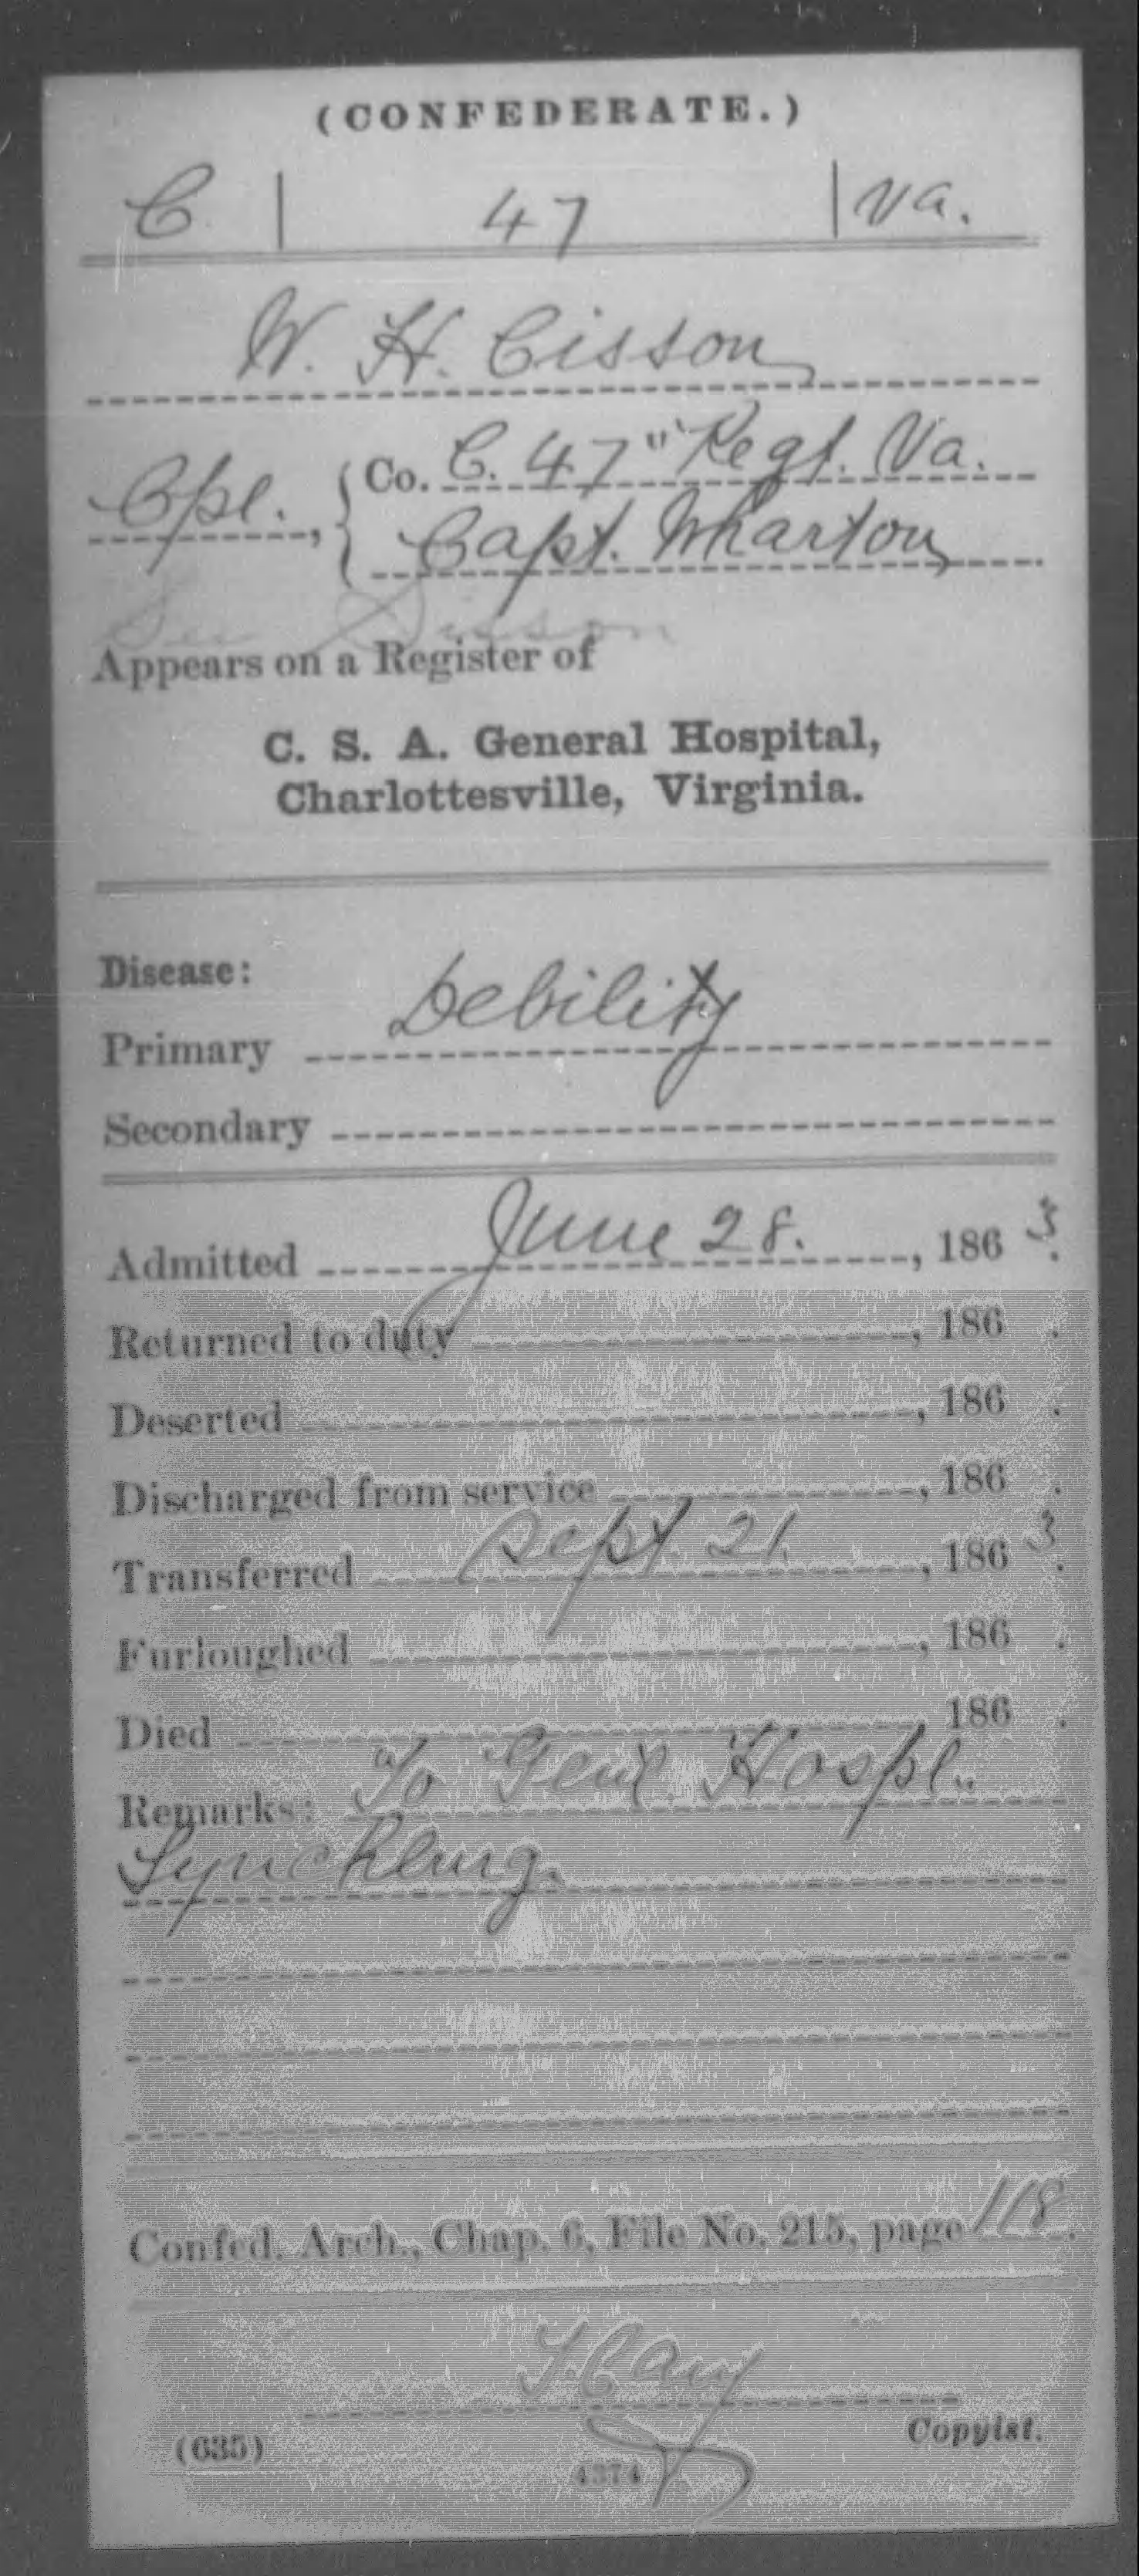 (CONFEDERATE.)
C | 47 | Va.
W. H. Cisson
Cpl., { Co. C. 47" Regt. Va.
Capt. Wharton
See Sisson
Appears on a Register of
C. S. A. General Hospital,
Charlottesville, Virginia.
Disease:
Primary Debility
Secondary
Admitted June 28., 186 3.
Returned to duty , 186 .
Deserted , 186 .
Discharged from service , 186 .
Transferred Sept. 21, 186 3.
Furloughed , 186 .
Died , 186 .
Remarks: To Genl. Hospl.
Lynchburg.
Confed. Arch., Chap. 6, File No. 215, page 118.
Copyist.
(635)
4374